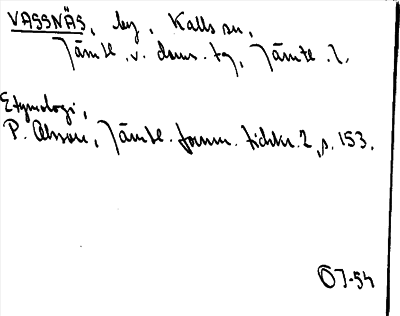 VASSNÄS, by, Kalls sn,
Jämtl. v. doms. tg, Jämtl. l.
Etymologi,
P. Olsson, Jämtl. fornm. tidskr. 2, s. 153.
ÖJ-54